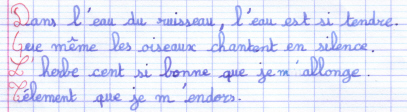 Dans l'eau du ruisseau, l'eau est si tendre.
Que même les oiseaux chantent en silence.
L'herbe cent si bonne que je m'allonge.
Télement que je m'endors.